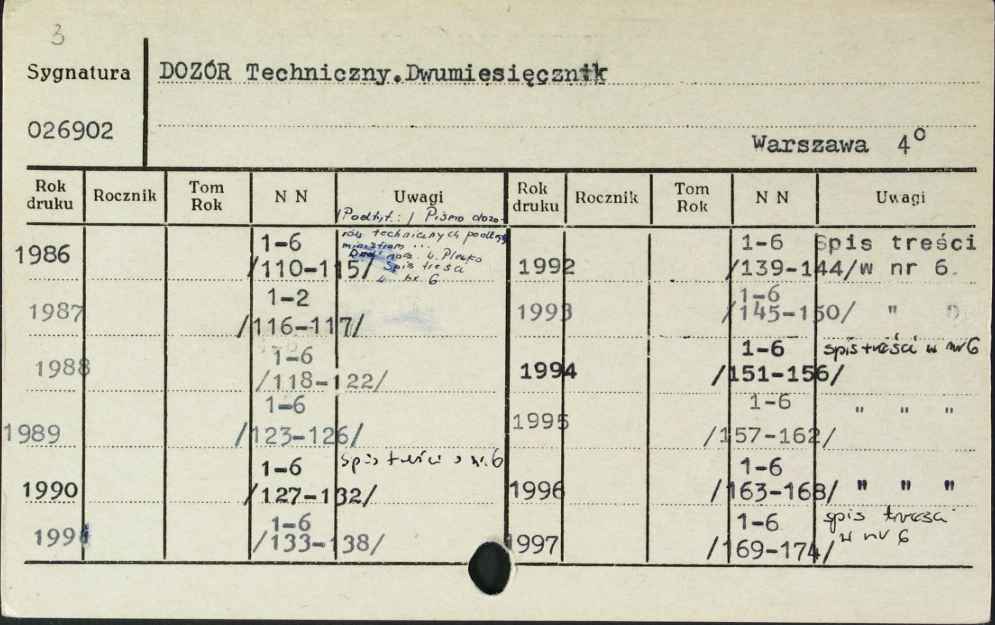 3
Sygnatura
DOZÓR Techniczny.Dwumiesięcznik
026902
Warszawa 4°
Rok druku Rocznik Tom Rok N N Uwagi Rok druku Rocznik Tom Rok N N Uwagi
/Podtyt.:/ Pismo dozo-
rów technicznych podleg
ministrom ...
Spis treści
nr. 6
1986 1-6
/110-115/
1987 1-2
/116-117/
1988 1-6
/118-122/
1989 1-6
/123-126/
1990 1-6 spis treści w nr. 6
/127-132/
1991 1-6
/133-138/
1992 1-6 Spis treści
/139-144/w nr 6.
1993 1-6
/145-150/ " "
1994 1-6 spis treści w nr 6
/151-156/
1995 1-6 " " "
/157-162/
1996 1-6
/163-168/ " " "
1997 1-6 spis treści
/169-174/ w nr 6